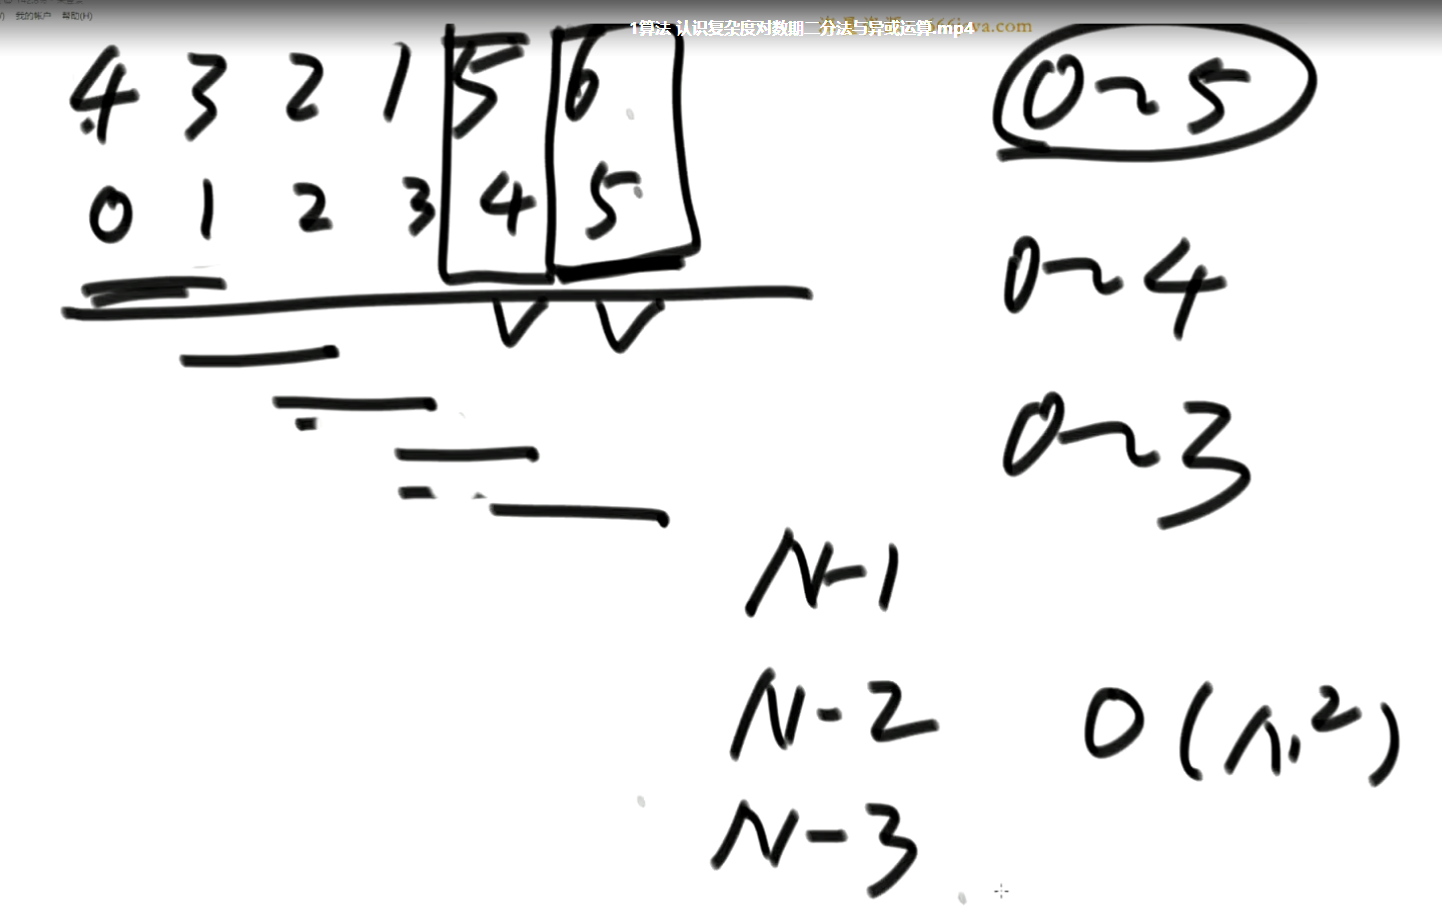 我的账户 帮助(H)
1算法 认识复杂度对数期二分法与异或运算.mp4
4 3 2 1 5 6
0 1 2 3 4 5
0~5
0~4
0~3
N-1
N-2
N-3
O(N²)